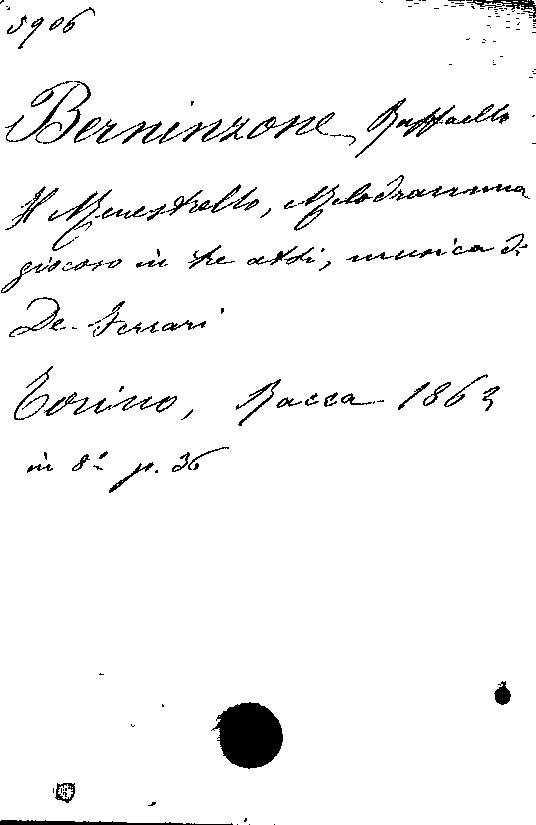 5906
Berninzone Raffaello
Il Menestrello, Melodramma
giocoso in tre atti, musica di
De-Ferrari
Torino, Racca 1863
in 8º p. 36